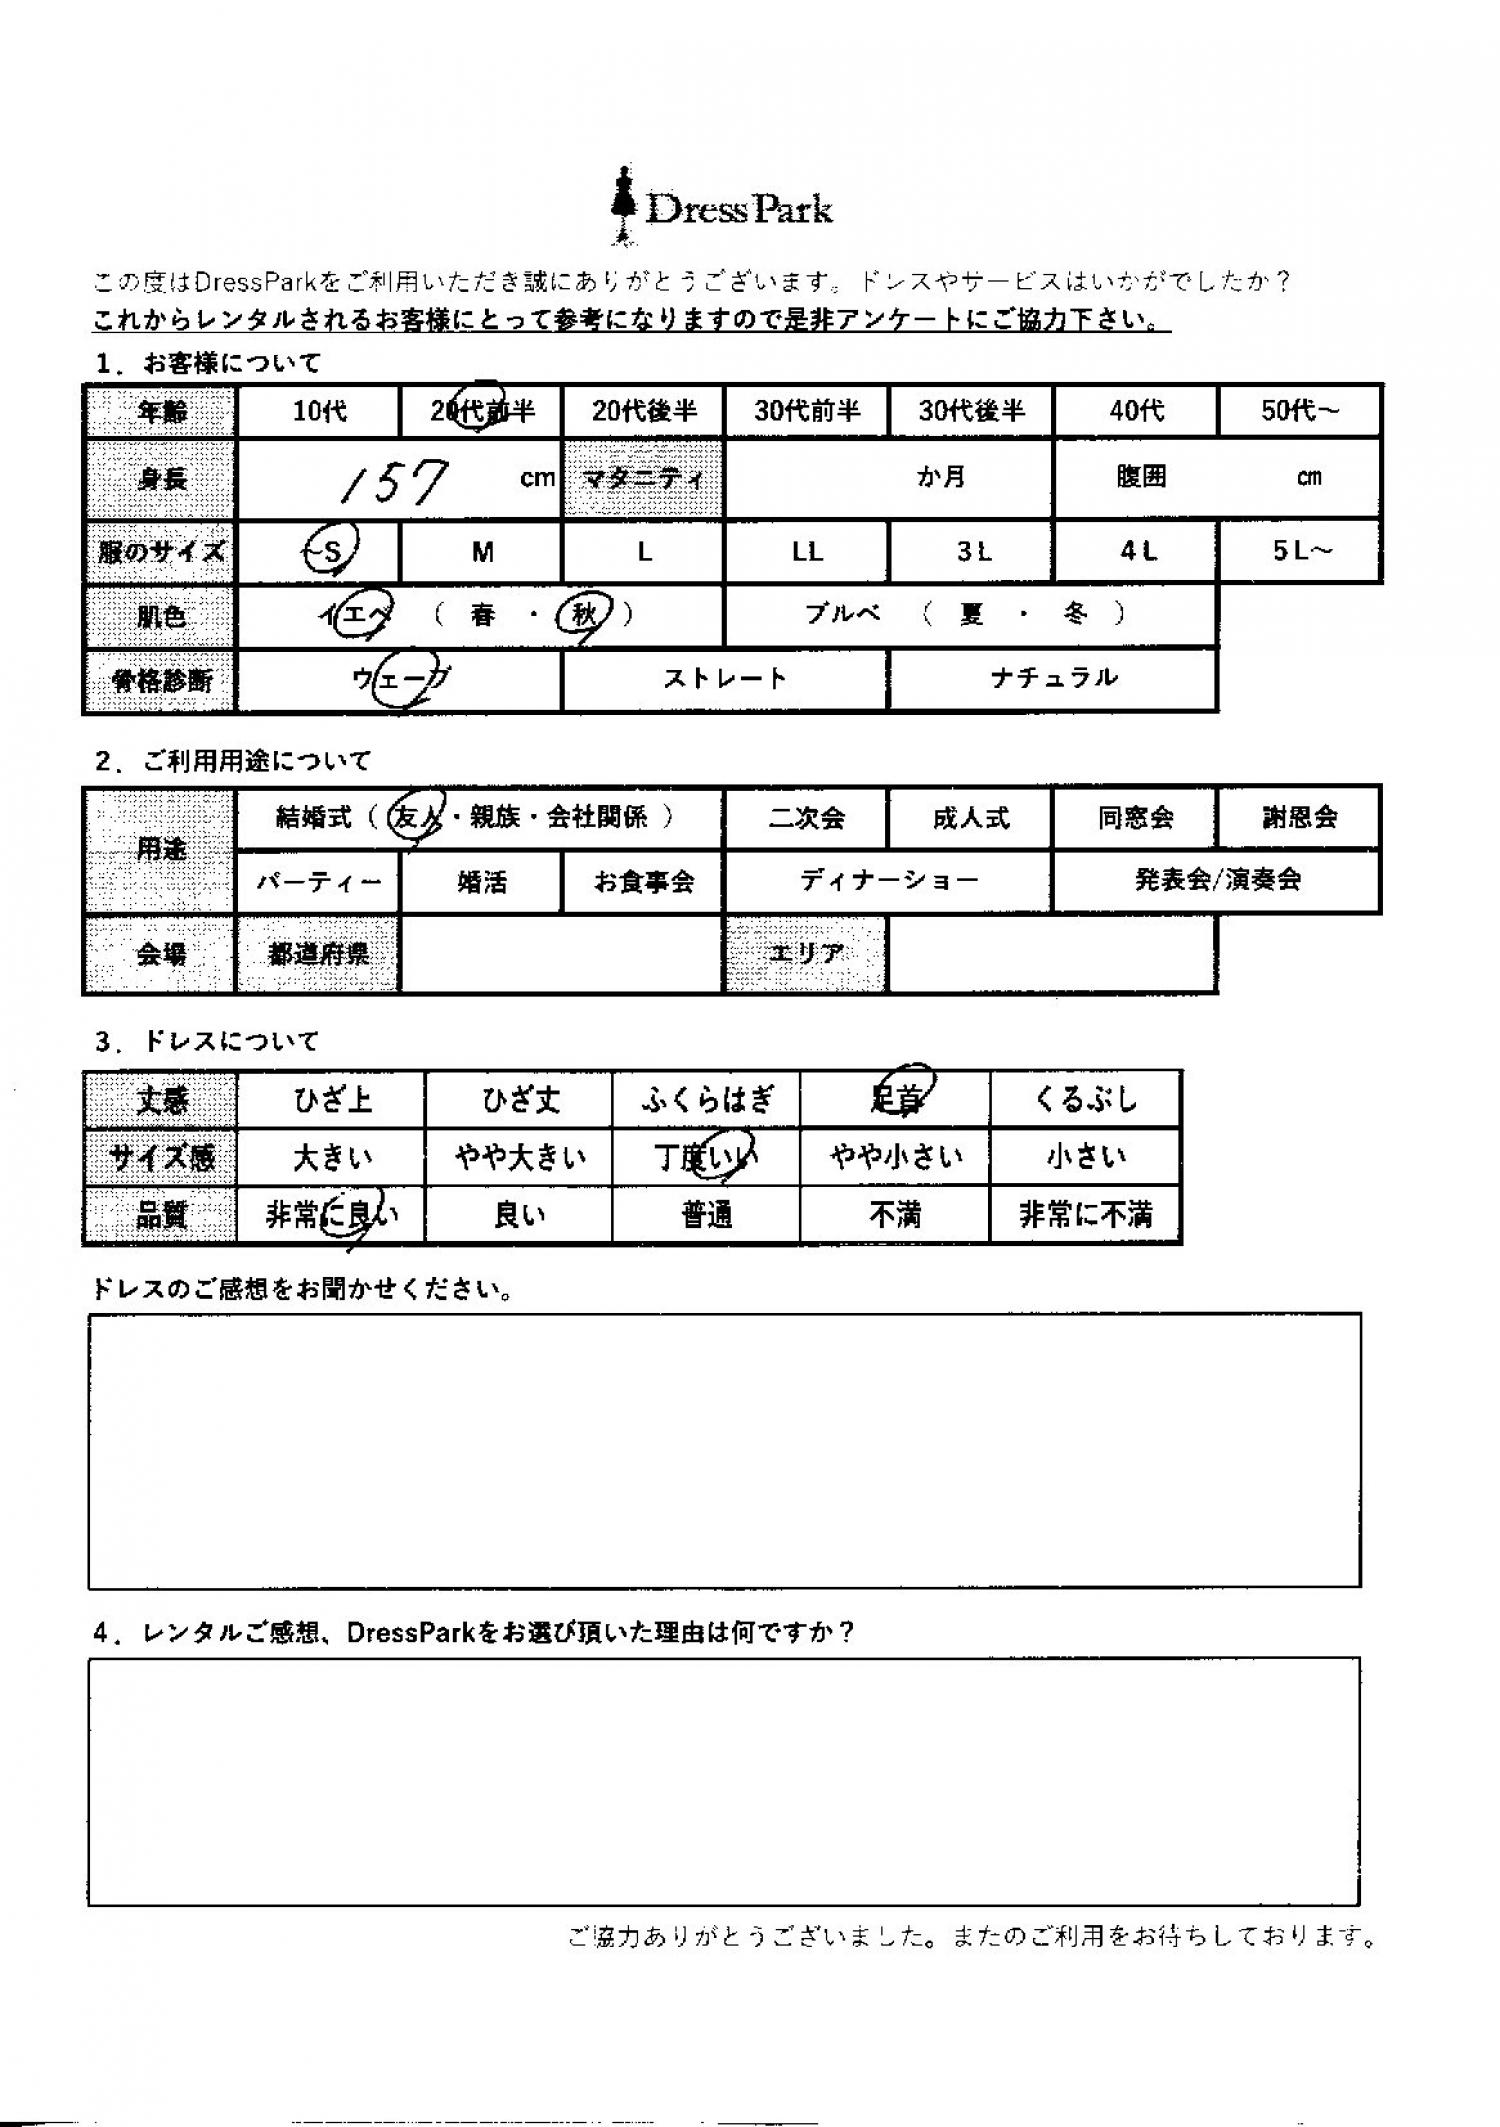 DressPark
この度はDressParkをご利用いただき誠にありがとうございます。ドレスやサービスはいかがでしたか？
これからレンタルされるお客様にとって参考になりますので是非アンケートにご協力下さい。
1．お客様について
年齢 10代 20代前半 20代後半 30代前半 30代後半 40代 50代～
身長 157 cm マタニティ か月 腹囲 cm
服のサイズ ～S M L LL 3L 4L 5L～
肌色 イエベ （ 春 ・ 秋 ） ブルベ （ 夏 ・ 冬 ）
骨格診断 ウェーブ ストレート ナチュラル
2．ご利用用途について
用途 結婚式（ 友人・親族・会社関係 ） 二次会 成人式 同窓会 謝恩会
パーティー 婚活 お食事会 ディナーショー 発表会/演奏会
会場 都道府県 エリア
3．ドレスについて
丈感 ひざ上 ひざ丈 ふくらはぎ 足首 くるぶし
サイズ感 大きい やや大きい 丁度いい やや小さい 小さい
品質 非常に良い 良い 普通 不満 非常に不満
ドレスのご感想をお聞かせください。
4．レンタルご感想、DressParkをお選び頂いた理由は何ですか？
ご協力ありがとうございました。またのご利用をお待ちしております。